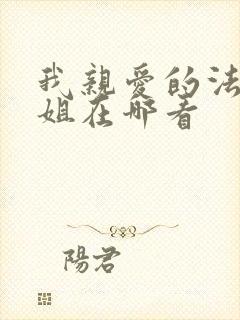 我親愛的法
姐在哪看
陽君